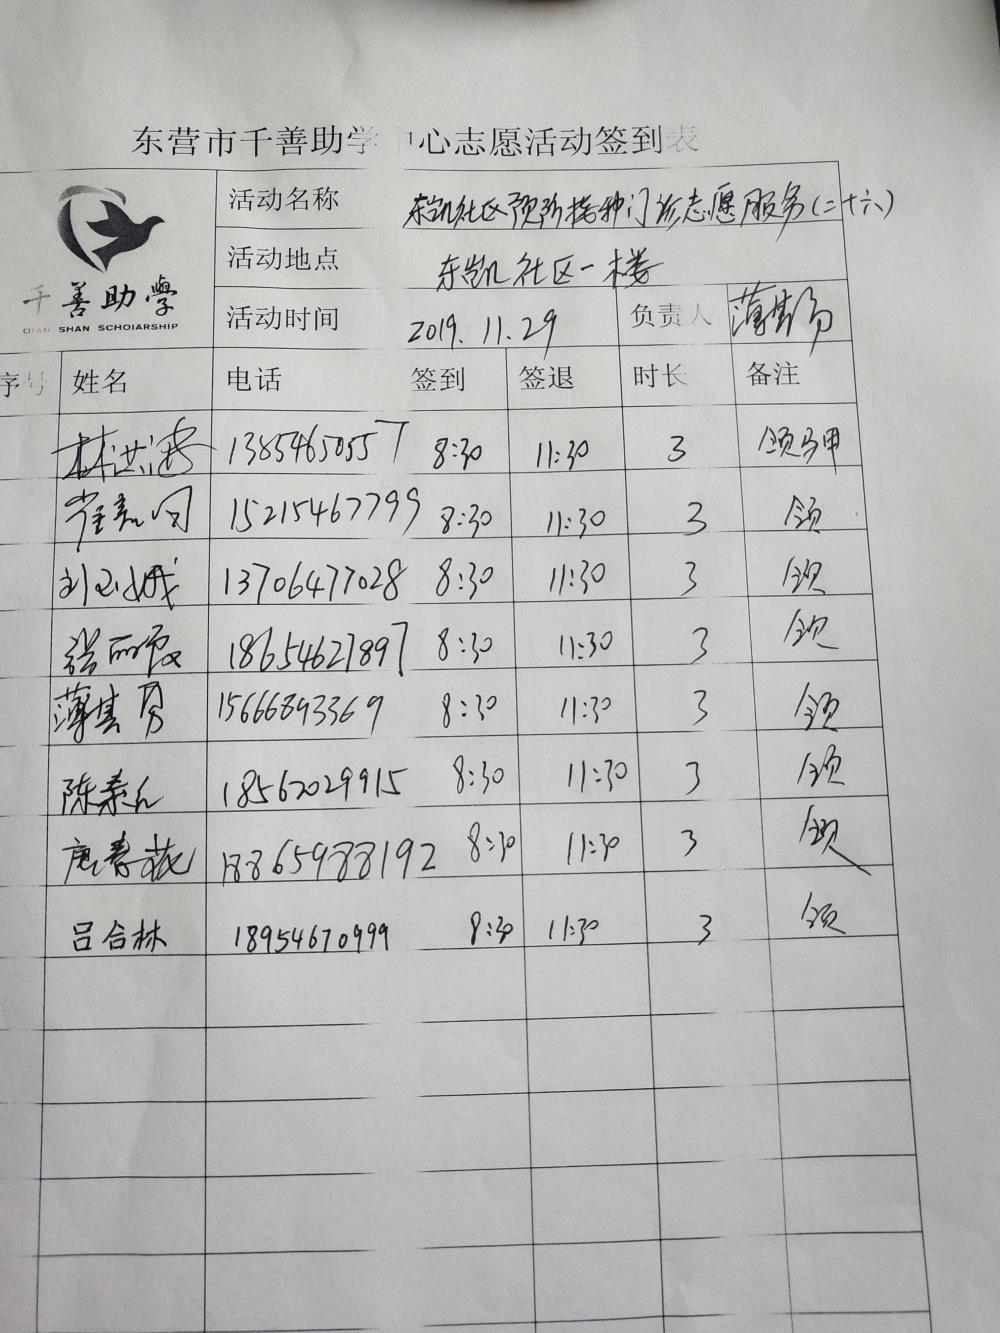 东营市千善助学中心志愿活动签到表
千善助學
QIAN SHAN SCHOIARSHIP
活动名称 东凯社区预防接种门诊志愿服务(二十六)
活动地点 东凯社区一楼
活动时间 2019.11.29 负责人 薄其勇
序号 姓名 电话 签到 签退 时长 备注
13854650557 8:30 11:30 3 领马甲
15215467799 8:30 11:30 3 领
13706477028 8:30 11:30 3 领
张丽霞 18654627897 8:30 11:30 3 领
薄其勇 15666893369 8:30 11:30 3 领
陈素 18562029915 8:30 11:30 3 领
唐春莲 18865988192 8:30 11:30 3 领
吕合林 18954670999 8:30 11:30 3 领